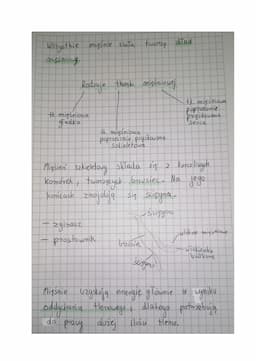 Wszystkie mięśnie ciała tworzą układ
mięśniowy.
Rodzaje tkanki mięśniowej
tk. mięśniowa
gładka
tk. mięśniowa
poprzecznie prążkowana
szkieletowa
tk. mięśniowa
poprzecznie
prążkowana
serca
Mięsień szkieletowy składa się z
komórek, tworzących brzusiec. Na jego
końcach znajdują się ścięgna.
ścięgno
- zginacz
- prostownik
brzusiec
włókno mięśniowe
włókienka
ścięgno
Mięśnie uzyskują energię głównie w wyniku
oddychania tlenowego, dlatego potrzebują
do pracy dużej ilości tlenu.